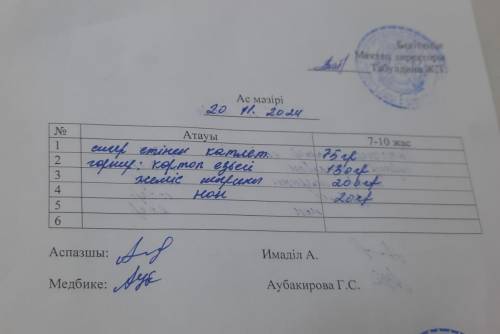 Бекітемін
Мектеп директоры
Табулдина Ж.Т.
Ас мәзірі
20. 11. 2024
№ Атауы 7-10 жас
1 сиыр етінен катлет 75гр
2 гарнир: картоп езбесі 130гр
3 жеміс шырыны 200гр
4 нан 20гр
5
6
Аспазшы: Имаділ А.
Медбике: Аубакирова Г.С.